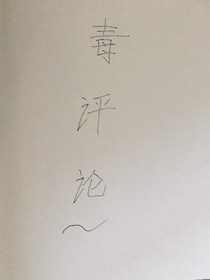 毒
评
论
~